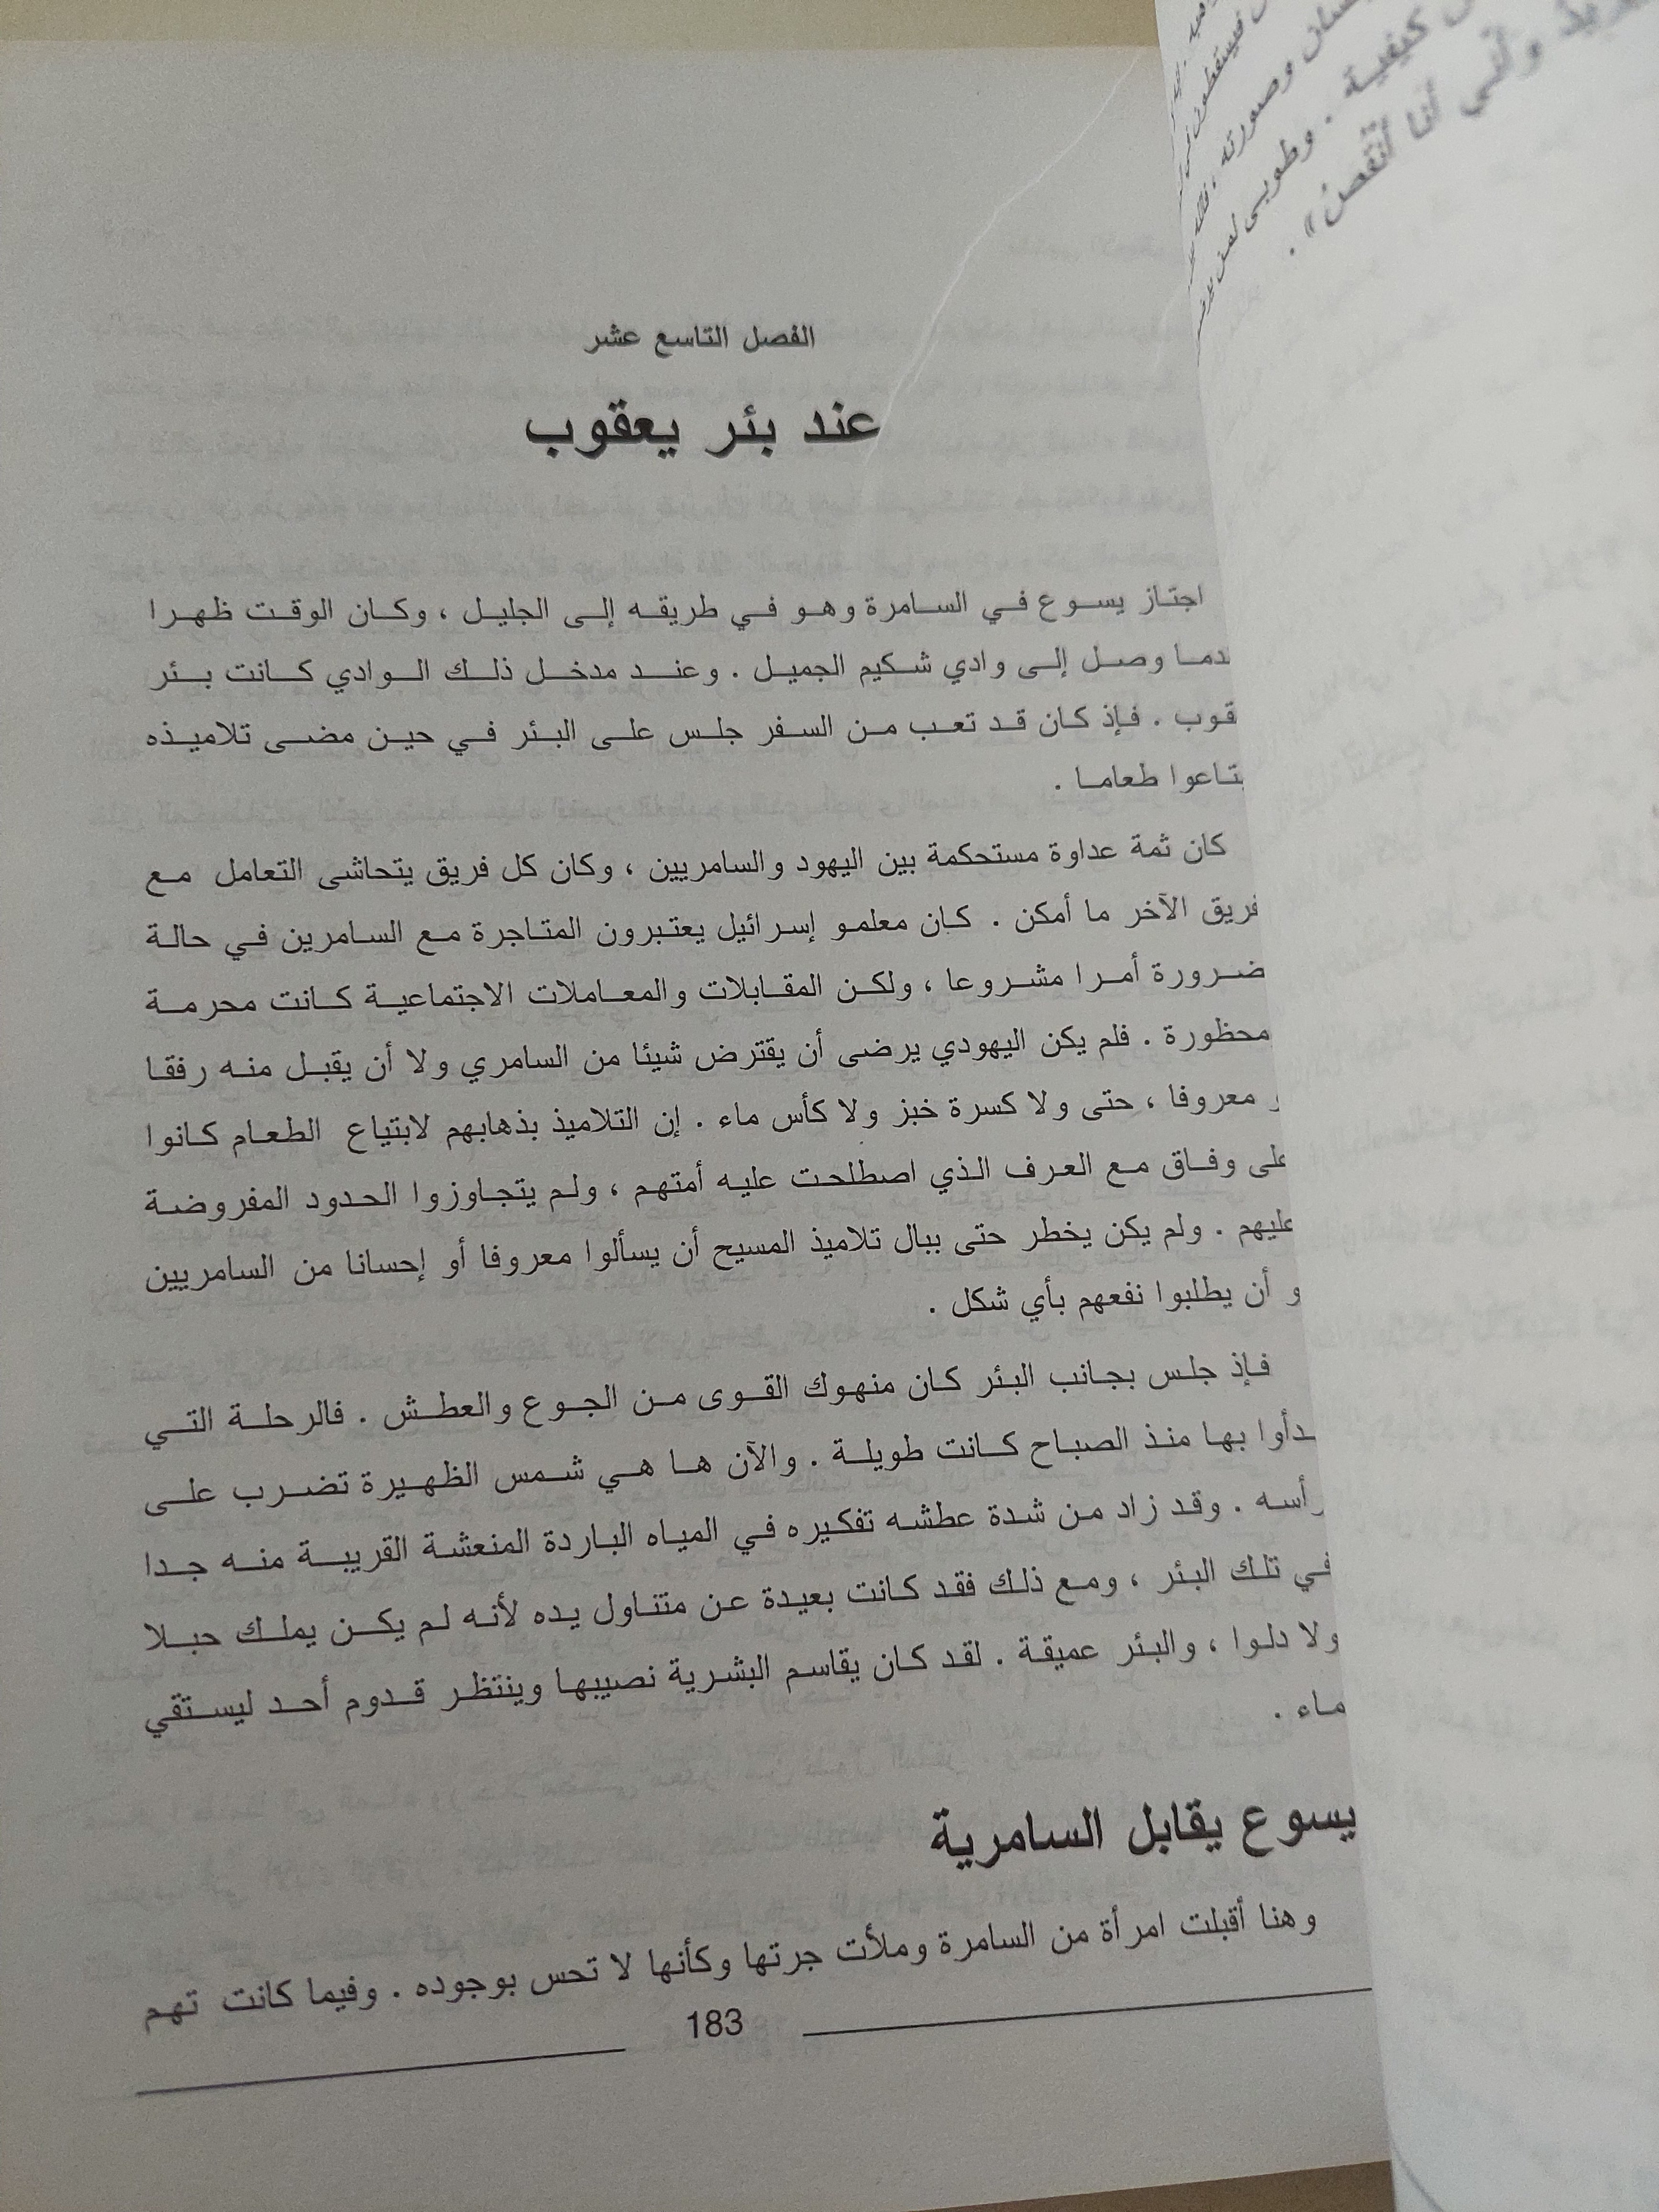 فيسقطون في
وصورته ، فالله
كيفية . وطوبى لمن
وأني أنا أنقص» .
الفصل التاسع عشر
عند بئر يعقوب
اجتاز يسوع في السامرة وهو في طريقه إلى الجليل ، وكان الوقت ظهرا
ندما وصل إلى وادي شكيم الجميل . وعند مدخل ذلك الوادي كانت بئر
قوب . فإذ كان قد تعب من السفر جلس على البئر في حين مضى تلاميذه
بتاعوا طعاما .
كان ثمة عداوة مستحكمة بين اليهود والسامريين ، وكان كل فريق يتحاشى التعامل مع
فريق الآخر ما أمكن . كان معلمو إسرائيل يعتبرون المتاجرة مع السامرين في حالة
ضرورة أمرا مشروعا ، ولكن المقابلات والمعاملات الاجتماعية كانت محرمة
محظورة . فلم يكن اليهودي يرضى أن يقترض شيئا من السامري ولا أن يقبل منه رفقا
و معروفا ، حتى ولا كسرة خبز ولا كأس ماء . إن التلاميذ بذهابهم لابتياع الطعام كانوا
على وفاق مع العرف الذي اصطلحت عليه أمتهم ، ولم يتجاوزوا الحدود المفروضة
عليهم . ولم يكن يخطر حتى ببال تلاميذ المسيح أن يسألوا معروفا أو إحسانا من السامريين
و أن يطلبوا نفعهم بأي شكل .
فإذ جلس بجانب البئر كان منهوك القوى من الجوع والعطش . فالرحلة التي
بدأوا بها منذ الصباح كانت طويلة . والآن ها هي شمس الظهيرة تضرب على
رأسه . وقد زاد من شدة عطشه تفكيره في المياه الباردة المنعشة القريبة منه جدا
في تلك البئر ، ومع ذلك فقد كانت بعيدة عن متناول يده لأنه لم يكن يملك حبلا
ولا دلوا ، والبئر عميقة . لقد كان يقاسم البشرية نصيبها وينتظر قدوم أحد ليستقي
ماء .
يسوع يقابل السامرية
وهنا أقبلت امرأة من السامرة وملأت جرتها وكأنها لا تحس بوجوده . وفيما كانت تهم
183